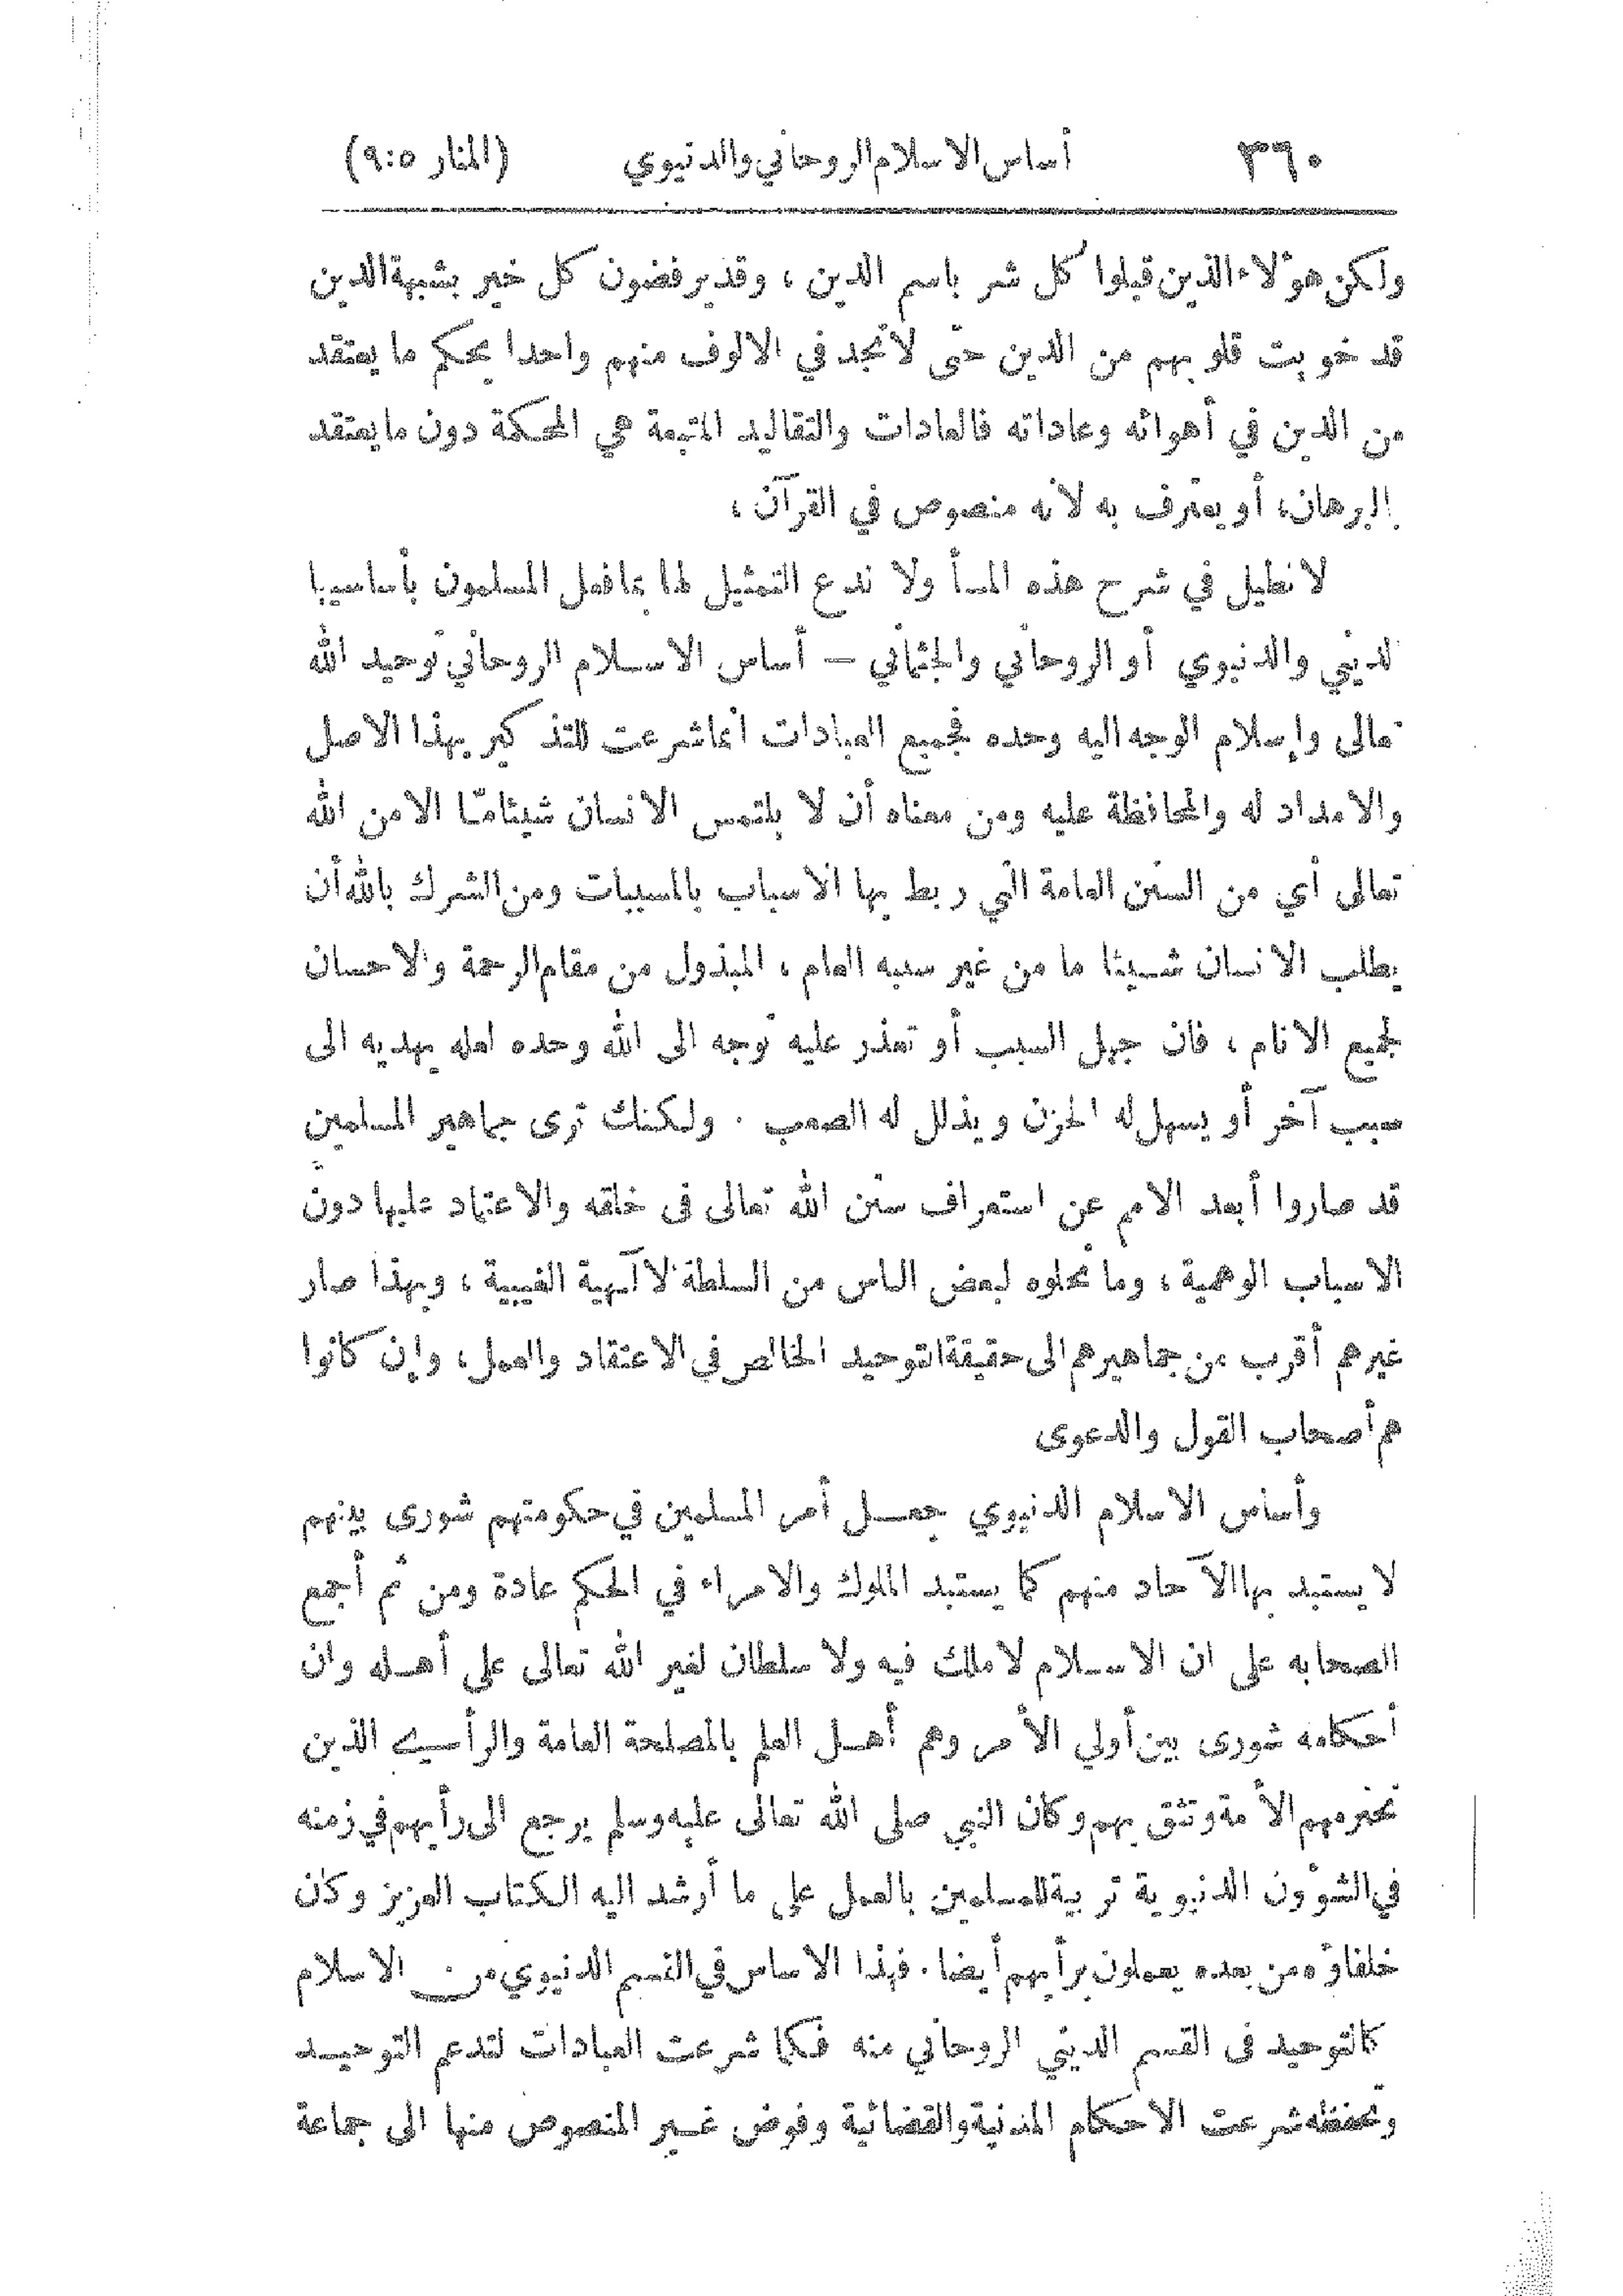 ٣٦٠ أساس الاسلام الروحاني والدنيوي (المنار ٩:٥)
ولكن هؤلاء الذين قبلوا كل شر باسم الدين ، وقد يرفضون كل خير بشبهة الدين
قد خويت قلوبهم من الدين حتى لا تجد في الالوف منهم واحدا يحكم ما يعتقد
من الدين في أهوائه وعاداته فالعادات والتقاليد المتبعة هي المحكمة دون ما يعتقد
بالبرهان، أو يعترف به لانه منصوص في القرآن ،
لا نطيل في شرح هذه المسأ ولا ندع التمثيل لها بما فعل المسلمون بأساسيها
لديني والدنيوي أو الروحاني والجثماني – أساس الاسلام الروحاني توحيد الله
تعالى وإسلام الوجه اليه وحده فجميع العبادات انما شرعت للتذكير بهذا الاصل
والامداد له والمحافظة عليه ومن معناه أن لا يلتمس الانسان شيئا مّا الا من الله
تعالى أي من السنن العامة التي ربط بها الاسباب بالمسببات ومن الشرك بالله أن
يطلب الانسان شيئا ما من غير سببه العام ، المبذول من مقام الرحمة والاحسان
لجميع الانام ، فان جهل السبب أو تعذر عليه توجه الى الله وحده لعله يهديه الى
سبب آخر أو يسهل له الحزن ويذلل له الصعب . ولكنك ترى جماهير المسلمين
قد صاروا أبعد الامم عن استعراف سنن الله تعالى في خلقه والاعتماد عليها دون
الاسباب الوهمية ، وما نحلوه لبعض الناس من السلطة الآلهية الغيبية ، وبهذا صار
غيرهم أقرب من جماهيرهم الى حقيقة التوحيد الخالص في الاعتقاد والعمل ، وإن كانوا
هم أصحاب القول والدعوى
وأساس الاسلام الدنيوي جعل أمر المسلمين في حكومتهم شورى بينهم
لا يستبد بها الآحاد منهم كما يستبد الملوك والامراء في الحكم عادة ومن ثم أجمع
الصحابه على ان الاسلام لا ملك فيه ولا سلطان لغير الله تعالى على أهله وان
أحكامه شورى بين أولي الأمر وهم أهل العلم بالمصلحة العامة والرأي الذين
تخيرهم الأمة وتثق بهم وكان النبي صلى الله تعالى عليه وسلم يرجع الى رأيهم في زمنه
في الشؤون الدنيوية تربية للمسلمين بالعمل على ما أرشد اليه الكتاب العزيز وكان
خلفاؤه من بعده يعملون برأيهم أيضا . فهذا الاساس في القسم الدنيوي من الاسلام
كالتوحيد في القسم الديني الروحاني منه فكما شرعت العبادات لتدعم التوحيد
وتحفظه شرعت الاحكام المدنية والقضائية وفوض غير المنصوص منها الى جماعة